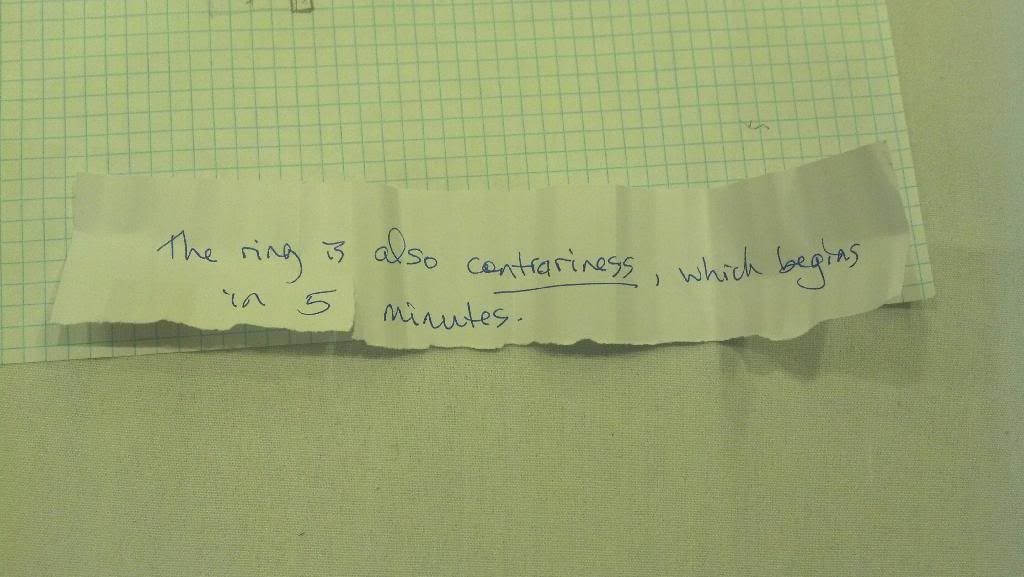 The ring is also contrariness, which begins
in 5 minutes.